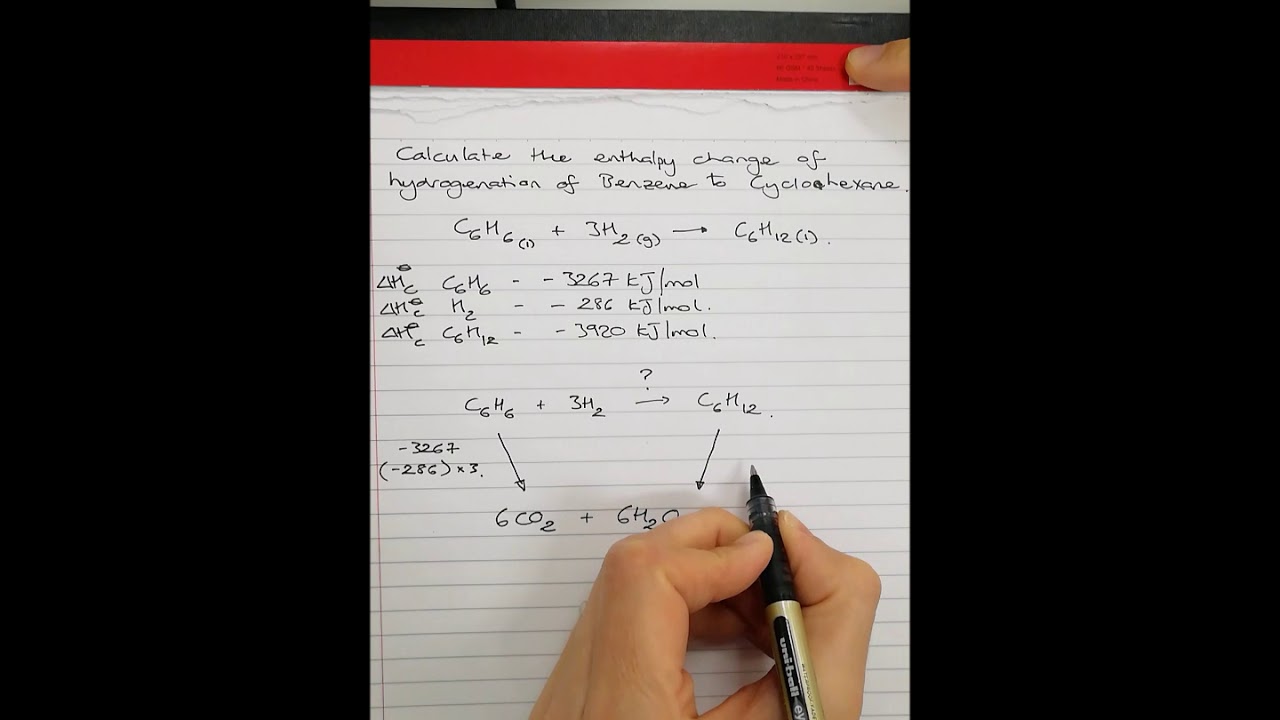 Made in China
Calculate the enthalpy change of
hydrogenation of Benzene to Cyclohexane.
C₆H₆(l) + 3H₂(g) → C₆H₁₂(l).
ΔH⦵c C₆H₆ - - 3267 kJ/mol
ΔH⦵c H₂ - - 286 kJ/mol.
ΔH⦵c C₆H₁₂ - - 3920 kJ/mol.
?
C₆H₆ + 3H₂ → C₆H₁₂.
-3267
(-286) × 3.
6CO₂ + 6H₂O
uni-ball eye